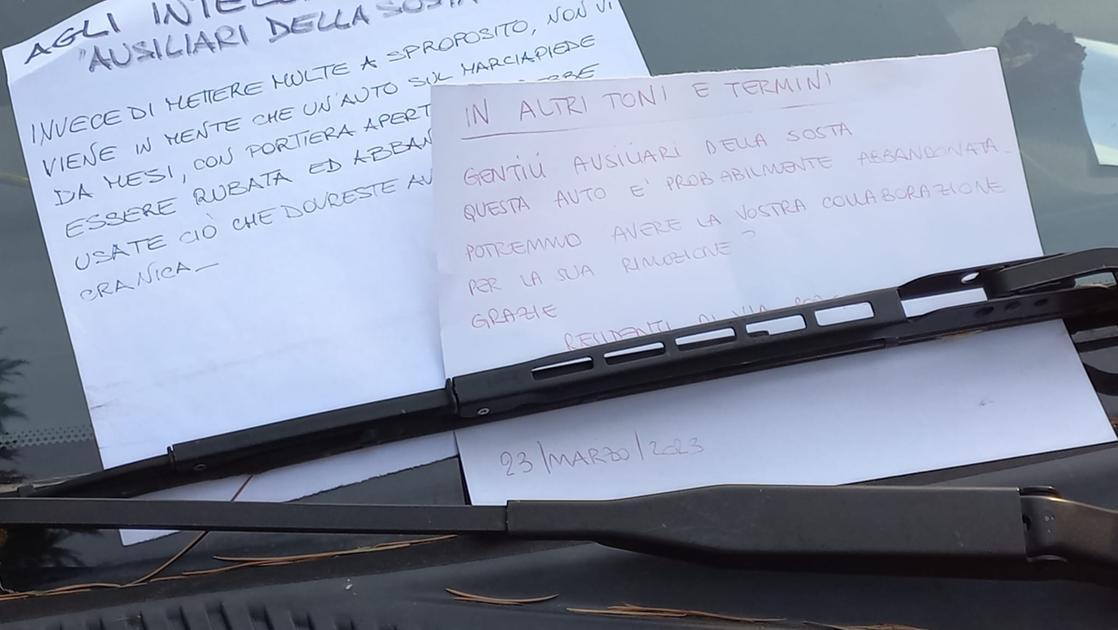 AGLI
"AUSILIARI DELLA SOSTA
INVECE DI METTERE MULTE A SPROPOSITO, NON VI
VIENE IN MENTE CHE UN'AUTO SUL MARCIAPIEDE
DA MESI, CON PORTIERA
ESSERE RUBATA ED
USATE CIÒ CHE DOVRESTE
CRANICA_
IN ALTRI TONI E TERMINI
GENTILI AUSILIARI DELLA SOSTA
QUESTA AUTO E' PROBABILMENTE ABBANDONATA.
POTREMMO AVERE LA VOSTRA COLLABORAZIONE
PER LA SUA RIMOZIONE?
GRAZIE
RESIDENTI DI VIA
23/MARZO/2023